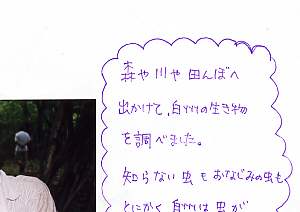 森や川や田んぼへ
出かけて、白州の生き物
を調べました。
知らない虫もおなじみの虫も
とにかく白州は虫が